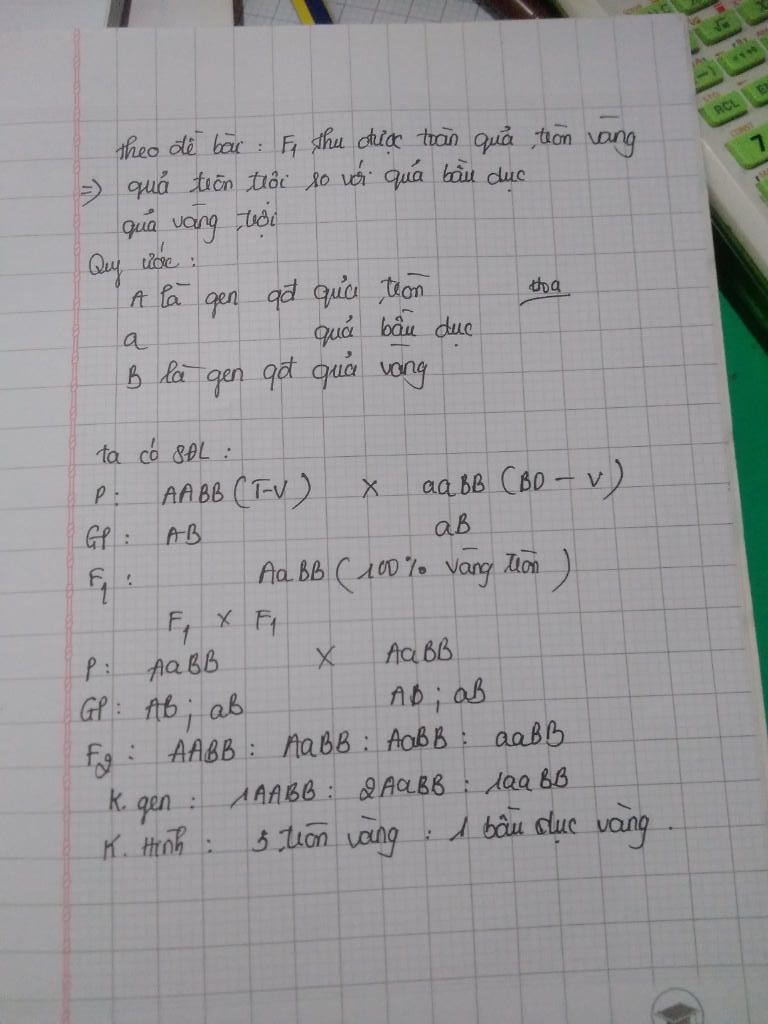 theo đề bài : F1 thu được toàn quả tròn vàng
=> quả tròn trội so với quả bầu dục
quả vàng trội
Quy ước :
A là gen qđ quả tròn
a quả bầu dục
B là gen qđ quả vàng
ta có SĐL :
P : AABB (T-V) X aaBB (BD - V)
GP : AB aB
F1 : AaBB (100% vàng tròn)
F1 X F1
P : AaBB X AaBB
GP : AB ; aB AB ; aB
F2 : AABB : AaBB : AaBB : aaBB
K. gen : 1AABB : 2AaBB : 1aaBB
K. Hình : 3 tròn vàng : 1 bầu dục vàng .
RCL
7